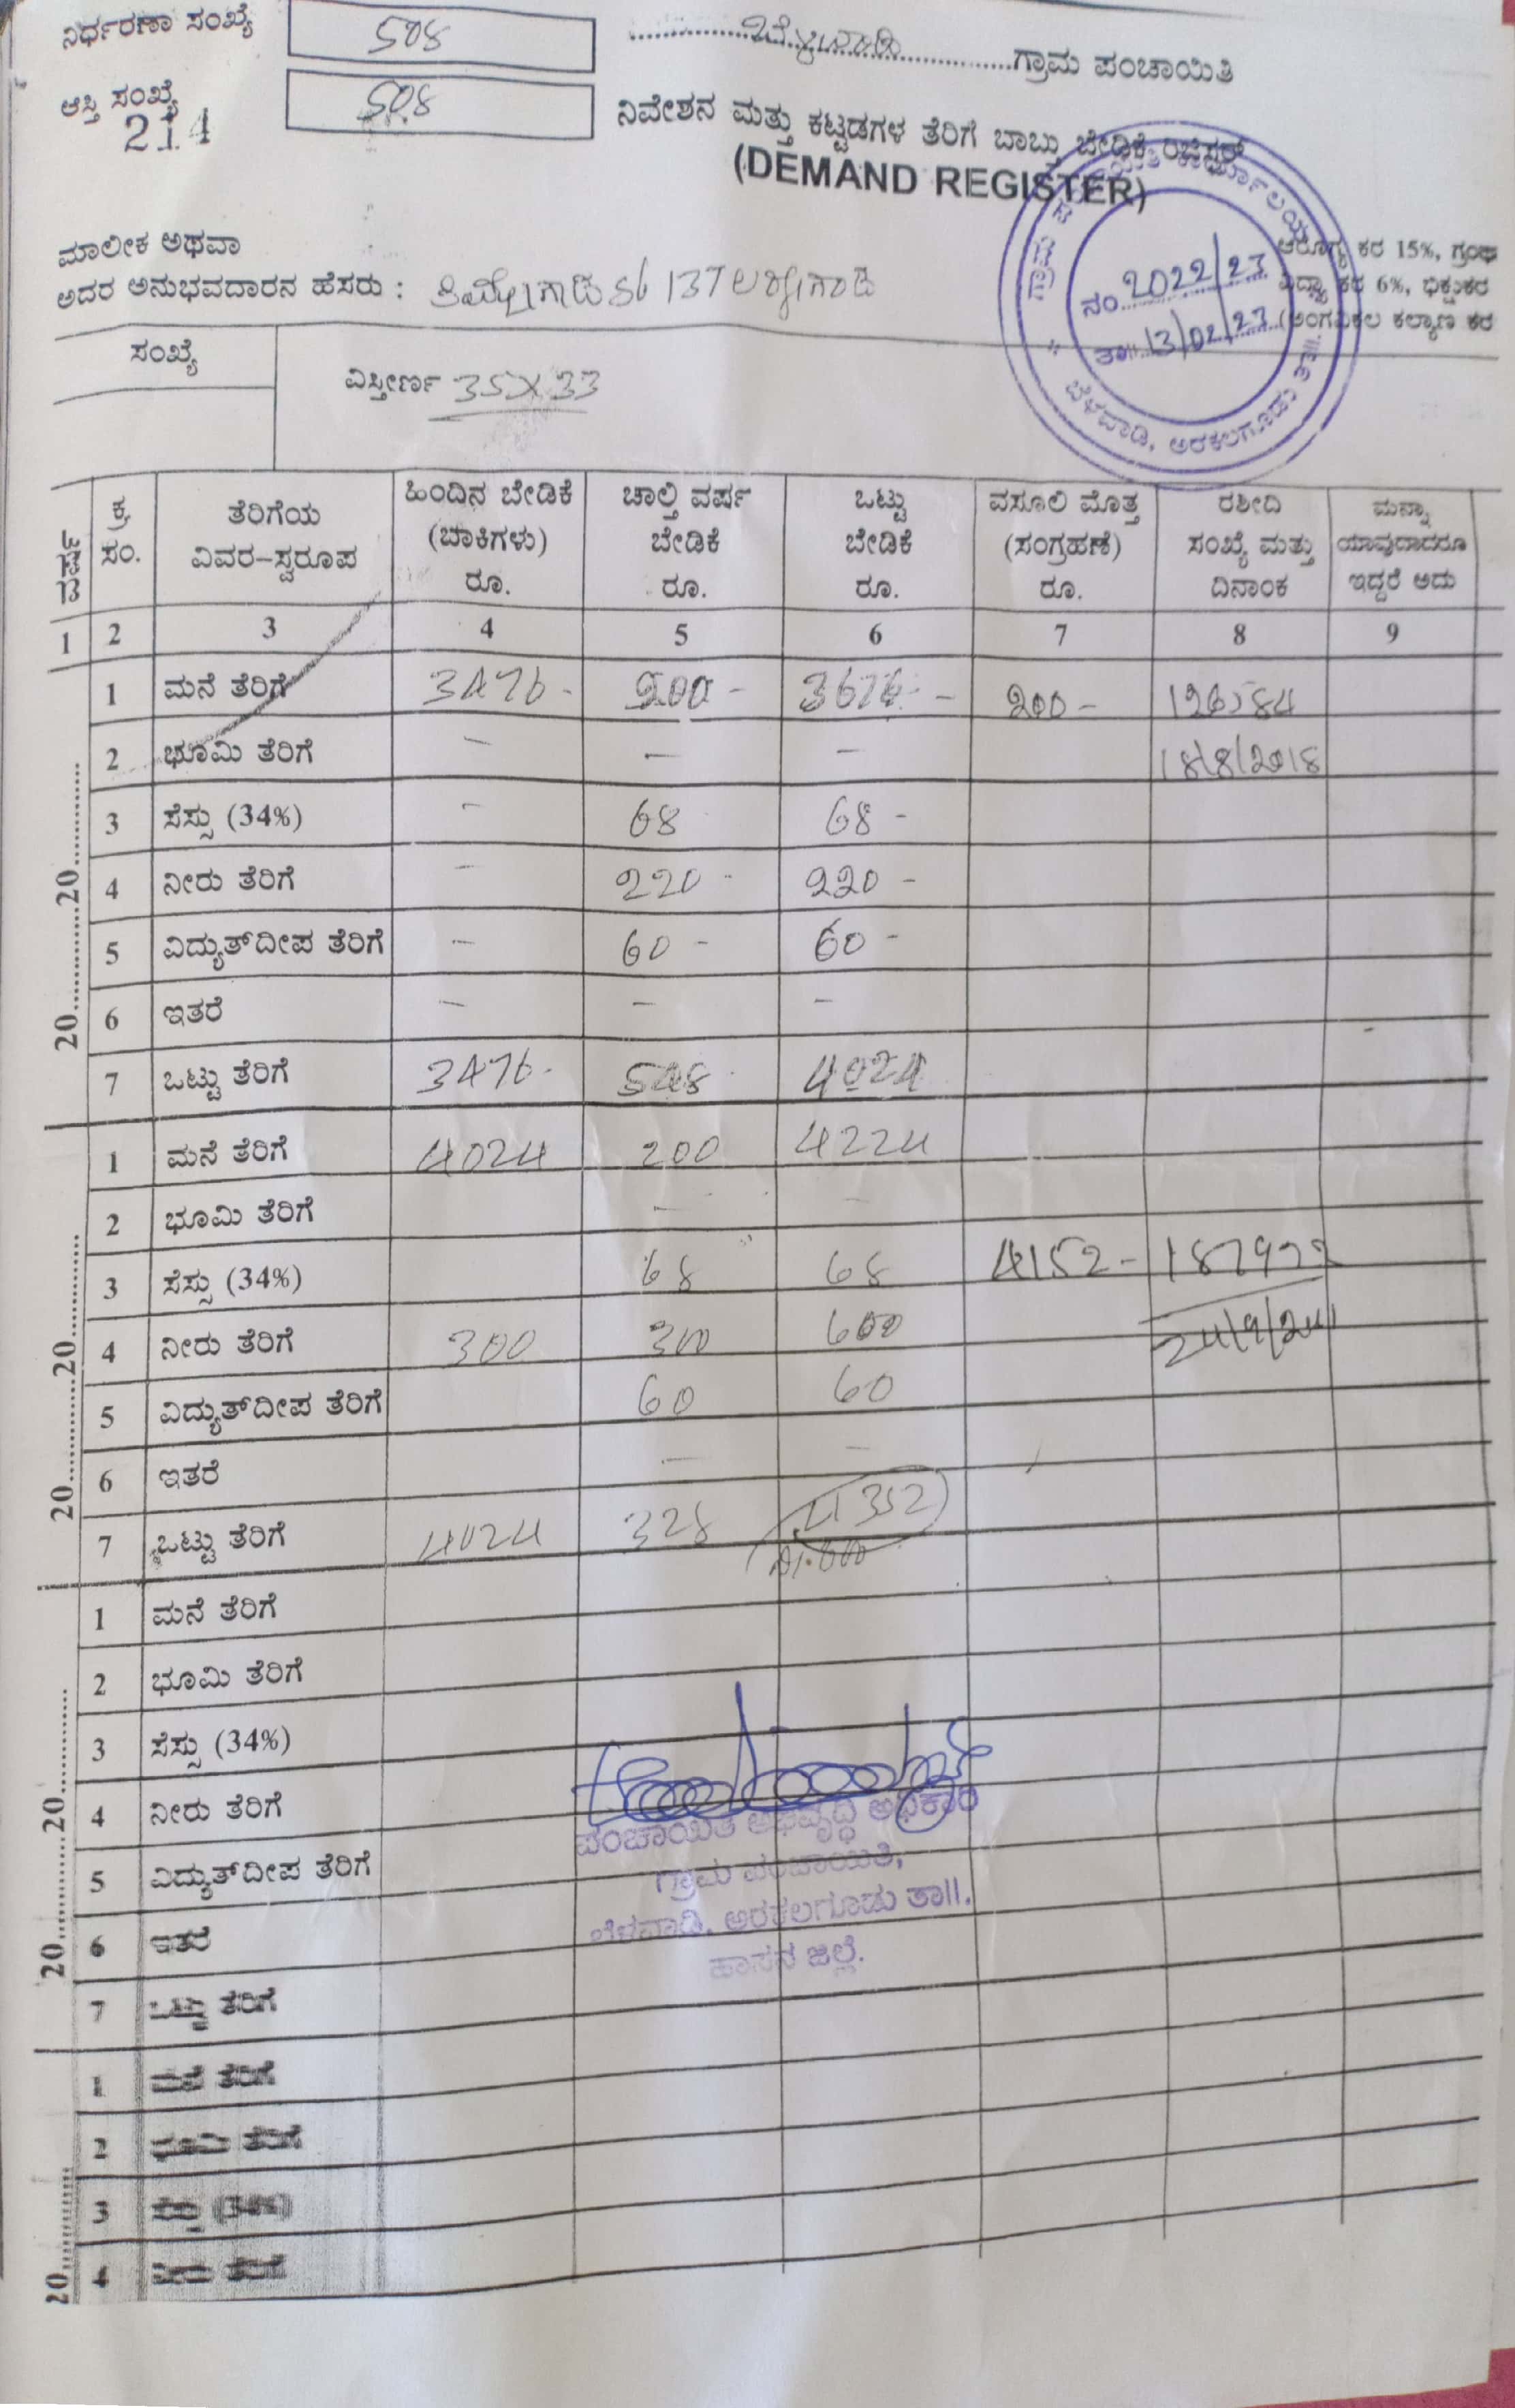 ನಿರ್ಧರಣಾ ಸಂಖ್ಯೆ 508
ಗ್ರಾಮ ಪಂಚಾಯಿತಿ
ಆಸ್ತಿ ಸಂಖ್ಯೆ 508
214
ನಿವೇಶನ ಮತ್ತು ಕಟ್ಟಡಗಳ ತೆರಿಗೆ ಬಾಬ್ತು ಬೇಡಿಕೆ ರಿಜಿಸ್ಟರ್
(DEMAND REGISTER)
ಮಾಲೀಕ ಅಥವಾ
ಅದರ ಅನುಭವದಾರನ ಹೆಸರು :
ಆರೋಗ್ಯ ಕರ 15%, ಗ್ರಂಥ
ವಿದ್ಯಾ ಕರ 6%, ಭಿಕ್ಷುಕರ
(ಅಂಗವಿಕಲ ಕಲ್ಯಾಣ ಕರ
ನಂ. 2022/23
ತಾ॥ 13/02/23
ಬೆಳವಾಡಿ, ಅರಕಲಗೂಡು ತಾ॥
ಸಂಖ್ಯೆ
ವಿಸ್ತೀರ್ಣ 35X33
ವರ್ಷ ಕ್ರ. ಸಂ. ತೆರಿಗೆಯ ವಿವರ-ಸ್ವರೂಪ ಹಿಂದಿನ ಬೇಡಿಕೆ (ಬಾಕಿಗಳು) ರೂ. ಚಾಲ್ತಿ ವರ್ಷ ಬೇಡಿಕೆ ರೂ. ಒಟ್ಟು ಬೇಡಿಕೆ ರೂ. ವಸೂಲಿ ಮೊತ್ತ (ಸಂಗ್ರಹಣೆ) ರೂ. ರಶೀದಿ ಸಂಖ್ಯೆ ಮತ್ತು ದಿನಾಂಕ ಮನ್ನಾ ಯಾವುದಾದರೂ ಇದ್ದರೆ ಅದು
1 2 3 4 5 6 7 8 9
20............20............
1 ಮನೆ ತೆರಿಗೆ 3476- 200- 3676- 200-
2 ಭೂಮಿ ತೆರಿಗೆ - - - 18/8/2018
3 ಸೆಸ್ಸು (34%) - 68 68-
4 ನೀರು ತೆರಿಗೆ - 220- 220-
5 ವಿದ್ಯುತ್‌ದೀಪ ತೆರಿಗೆ - 60- 60-
6 ಇತರೆ - - -
7 ಒಟ್ಟು ತೆರಿಗೆ 3476- 548- 4024
20............20............
1 ಮನೆ ತೆರಿಗೆ 4024 200 4224
2 ಭೂಮಿ ತೆರಿಗೆ - -
3 ಸೆಸ್ಸು (34%) 68 68 4152-
4 ನೀರು ತೆರಿಗೆ 300 300 600
5 ವಿದ್ಯುತ್‌ದೀಪ ತೆರಿಗೆ 60 60
6 ಇತರೆ - -
7 ಒಟ್ಟು ತೆರಿಗೆ 4024 328 4352
20............20............
1 ಮನೆ ತೆರಿಗೆ
2 ಭೂಮಿ ತೆರಿಗೆ
3 ಸೆಸ್ಸು (34%)
4 ನೀರು ತೆರಿಗೆ
5 ವಿದ್ಯುತ್‌ದೀಪ ತೆರಿಗೆ
6 ಇತರೆ
7 ಒಟ್ಟು ತೆರಿಗೆ
ಪಂಚಾಯಿತಿ ಅಭಿವೃದ್ಧಿ ಅಧಿಕಾರಿ
ಗ್ರಾಮ ಪಂಚಾಯಿತಿ,
ಬೆಳವಾಡಿ, ಅರಕಲಗೂಡು ತಾ||.
ಹಾಸನ ಜಿಲ್ಲೆ.
20............
1 ಮನೆ ತೆರಿಗೆ
2 ಭೂಮಿ ತೆರಿಗೆ
3 ಸೆಸ್ಸು (34%)
4 ನೀರು ತೆರಿಗೆ